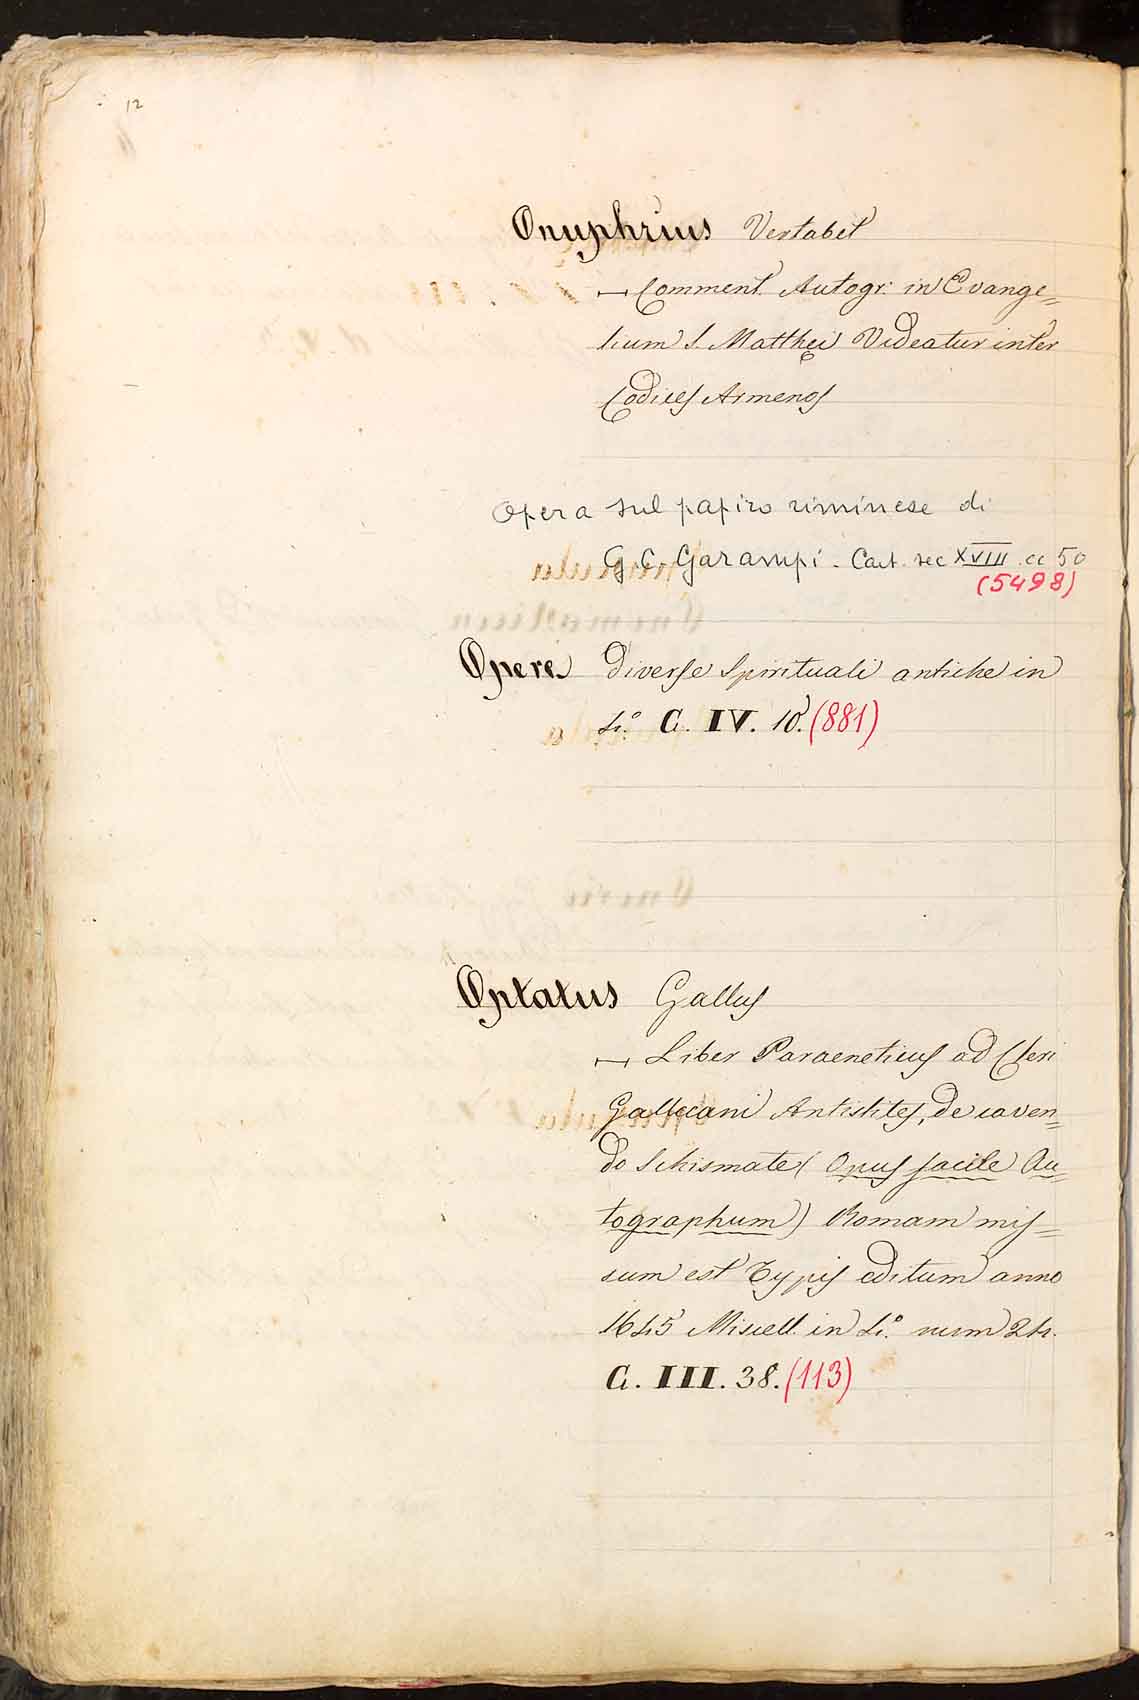 12
Onuphrius Vertabet
— Comment. Autogr: in Evange=
lium S. Matthęi Videatur inter
Codices Armenos
Opera sul papiro riminese di
G. C. Garampi. Cart. sec XVIII cc 50
(5498)
Opere diverse Spirituali antiche in
4.° C. IV. 10. (881)
Optatus Gallus
— Liber Paraeneticus ad Cleri
Gallicani Antistites, de caven=
do Schismate (Opus facile Au=
tographum) Romam mis=
sum est Typis editum anno
1645 Miscell. in 4.° num 24.
C. III. 38. (113)